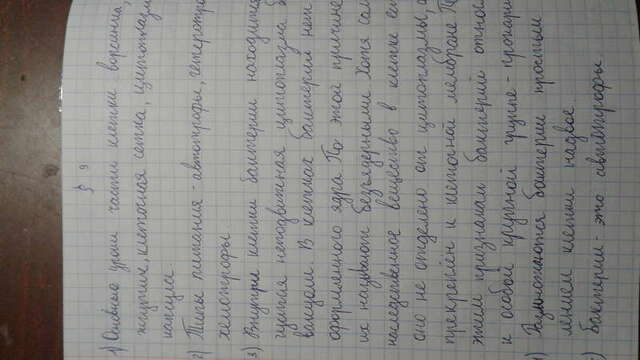 § 9
1) Основные уроки части клетки ворсинка
жгутик, клеточная сетка, цитоплазм
капсула.
2) Типы питания - автотрофы, гетеротро
хемотрофы.
3) Внутри клетки бактерии находится
густая неподвижная цитоплазма б
вакуом. В клетках бактерий нет
оформленного ядра По этой причине
их называют безъядерными. Хотя сам
наследственное вещество в клетке ес
оно не отделено от цитоплазмы, а
прекреплен к клеточной мембране П
этим признакам бактерий относ
к особой крупной группе - прокари
4) Размножаются бактерии простым
лением клетки надвое.
5) Бактерии - это автотрофы.